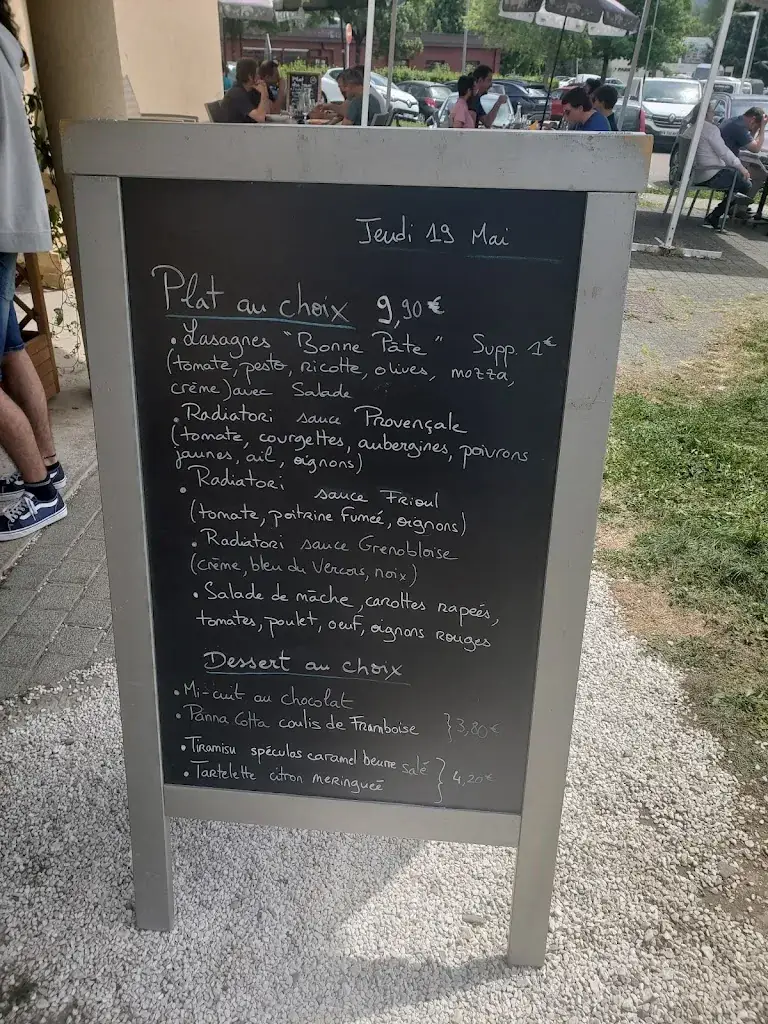 Jeudi 19 Mai
Plat au choix 9,90€
• Lasagnes "Bonne Pâte" Supp. 1€
(tomate, pesto, ricotte, olives, mozza,
crème) avec Salade
• Radiatori sauce Provençale
(tomate, courgettes, aubergines, poivrons
jaunes, ail, oignons)
• Radiatori sauce Frioul
(tomate, poitrine Fumeé, oignons)
• Radiatori sauce Grenobloise
(crème, bleu du Vercors, noix)
• Salade de mâche, carottes rapeés,
tomates, poulet, oeuf, oignons rouges
Dessert au choix
• Mi-cuit au chocolat
• Panna Cotta coulis de Framboise } 3,80€
• Tiramisu spéculos caramel beurre salé
• Tartelette citron meringueé } 4,20€